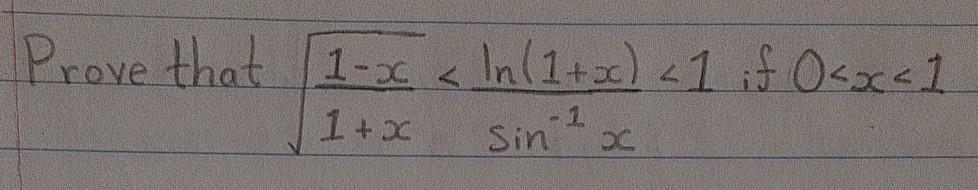 Prove that √((1-x)/(1+x)) < ln(1+x)/sin⁻¹ x < 1 if 0<x<1